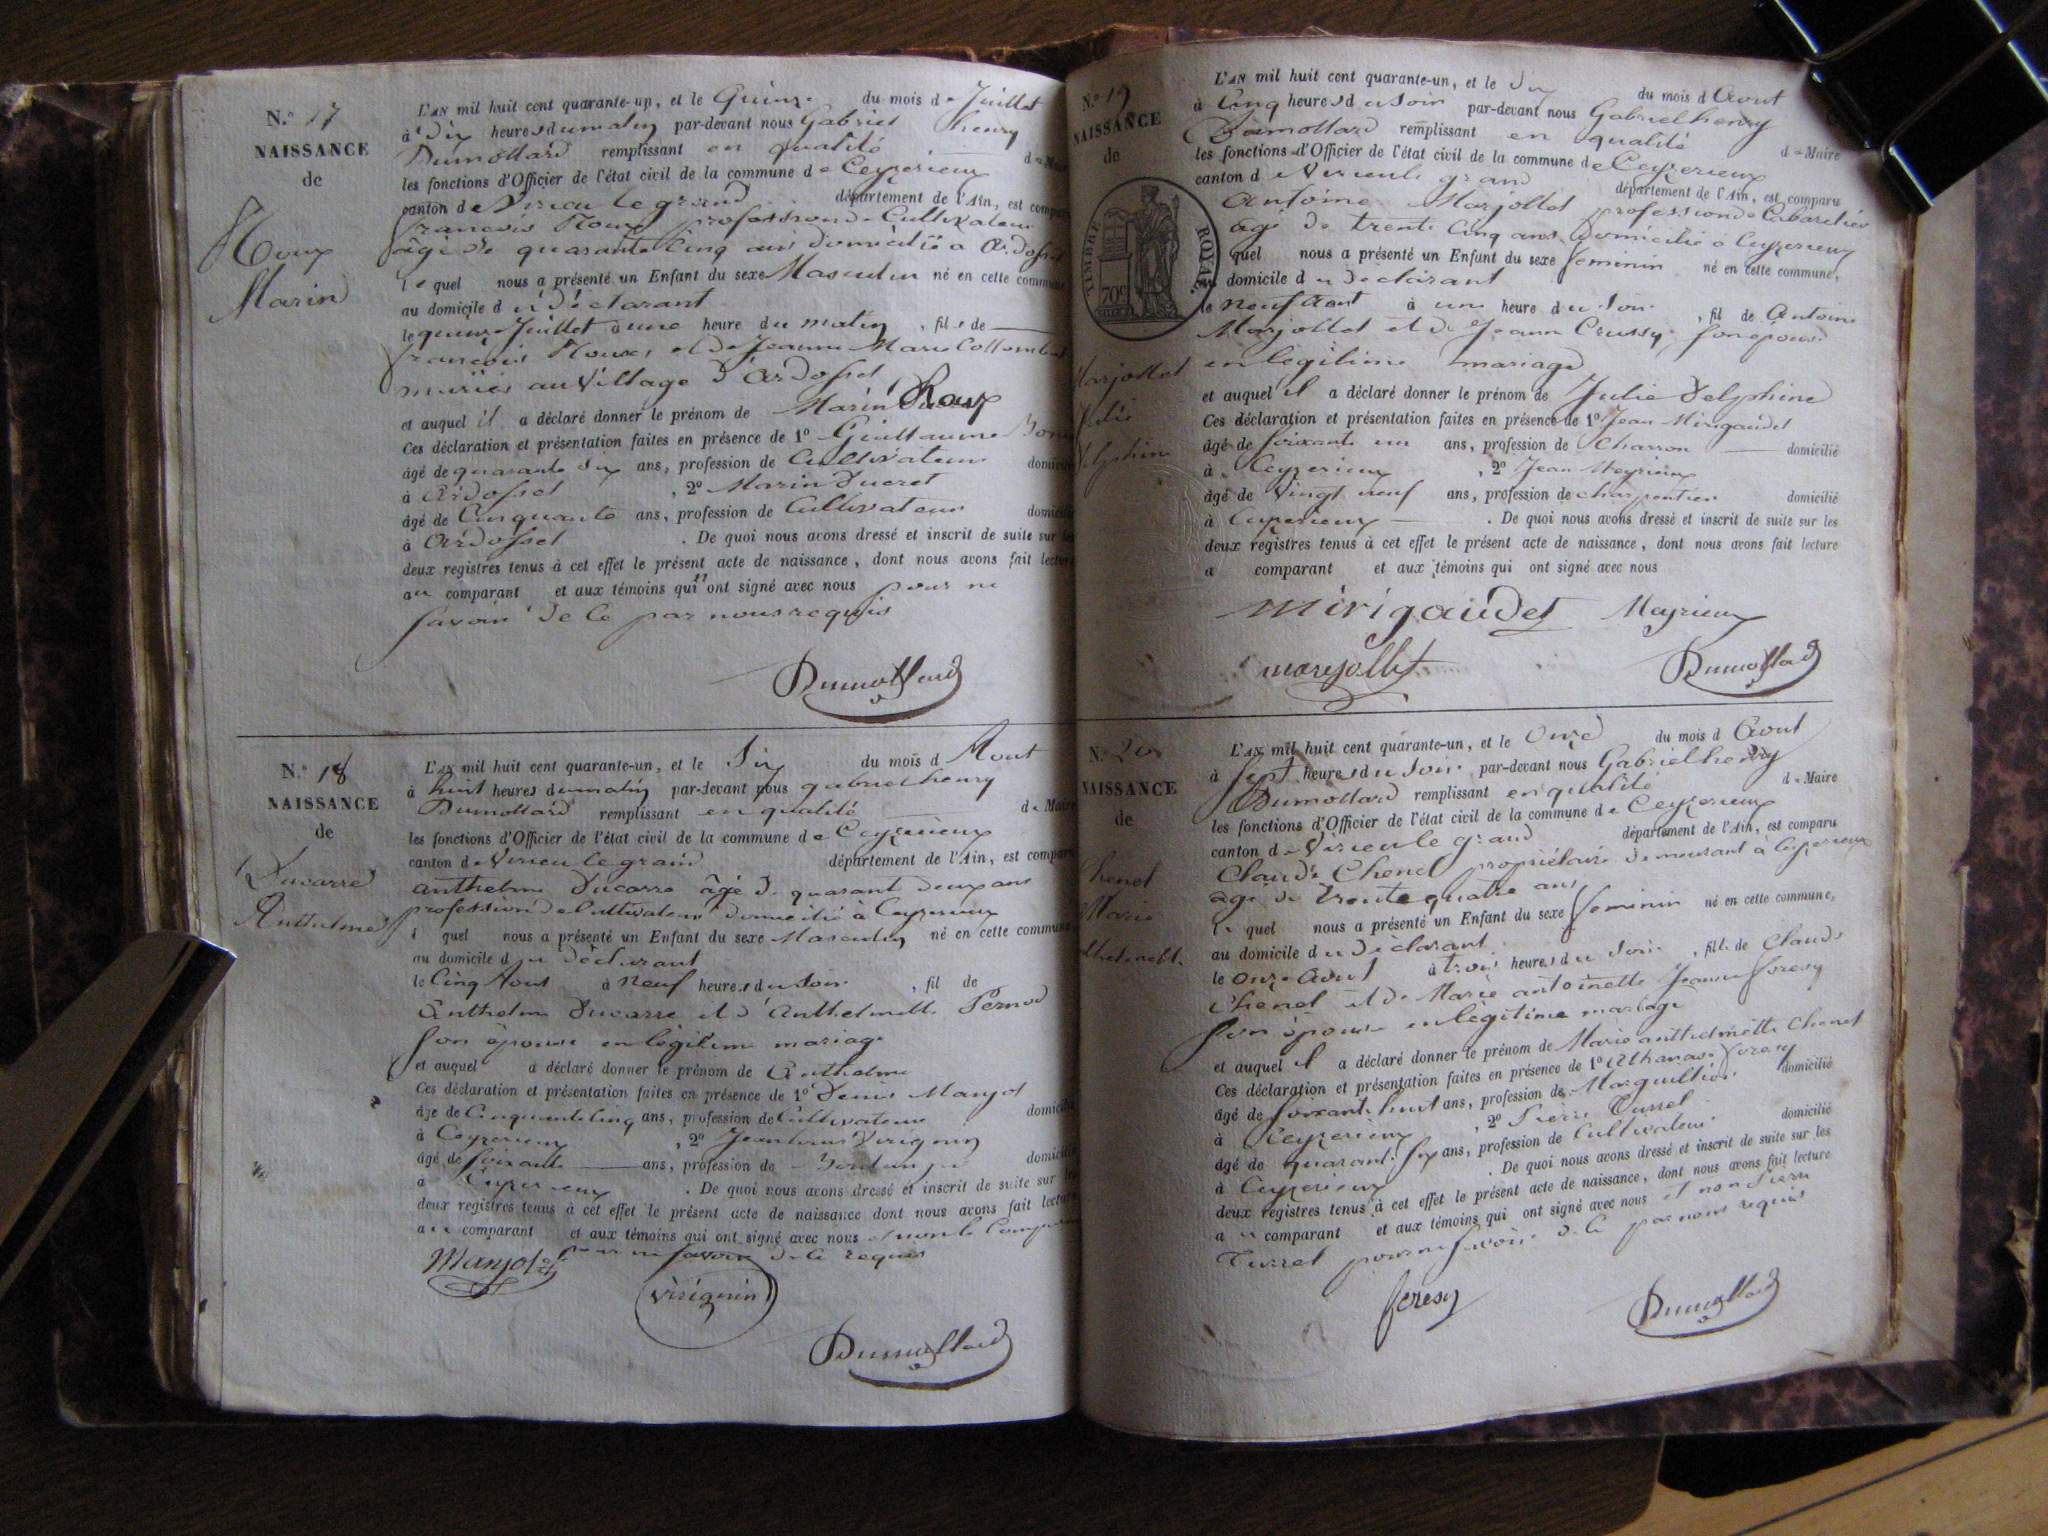 N.° 17
NAISSANCE
de
Roux
Marin
L'AN mil huit cent quarante-un, et le Quinze du mois de Juillet
à dix heures du matin par-devant nous Gabriel henry
Dumollard remplissant en qualité de Maire
les fonctions d'Officier de l'état civil de la commune de Ceyzerieux
canton de Virieu le grand département de l'Ain, est comparu
francois Roux profession de Cultivateur
âgé de quarante cinq ans domicilié à Ardosset
lequel nous a présenté un Enfant du sexe Masculin né en cette commune
au domicile du déclarant
le quinze Juillet à une heure du matin, fils de
francois Roux et de Jeanne Marie
mariés au Village d'Ardosset
et auquel il a déclaré donner le prénom de Marin Roux
Ces déclaration et présentation faites en présence de 1° Guillaume
âgé de quarante six ans, profession de Cultivateur domicilié
à Ardosset, 2° Marin Ducret
âgé de Cinquante ans, profession de Cultivateur domicilié
à Ardosset. De quoi nous avons dressé et inscrit de suite sur les
deux registres tenus à cet effet le présent acte de naissance, dont nous avons fait lecture
au comparant et aux témoins qui n'ont signé avec nous pour ne
savoir de ce par nous requis
Dumollard
N.° 18
NAISSANCE
de
Ducarre
Anthelme
L'AN mil huit cent quarante-un, et le Six du mois d Aout
à huit heures du matin par-devant nous gabriel henry
Dumollard remplissant en qualité de Maire
les fonctions d'Officier de l'état civil de la commune de Ceyzerieux
canton de Virieu le grand département de l'Ain, est comparu
anthelme Ducarre âgé de quarant deux ans
profession de Cultivateur domicilié à Ceyzerieux
l quel nous a présenté un Enfant du sexe Masculin né en cette commune
au domicile du déclarant
le Cinq Aout à neuf heures du soir, fil de
Anthelme Ducarre et d'Anthelmette Pernod
son épouse en légitime mariage
et auquel a déclaré donner le prénom de Anthelme
Ces déclaration et présentation faites en présence de 1° Denis
âge de Cinquante Cinq ans, profession de Cultivateur domicilié
à Ceyzerieux, 2° Jean Virignin
âgé de soixante ans, profession de domicilié
à Ceyzerieux. De quoi nous avons dressé et inscrit de suite sur les
deux registres tenus à cet effet le présent acte de naissance dont nous avons fait lecture
au comparant et aux témoins qui ont signé avec nous et non le comparant
pour ne savoir de ce requis
virignin
Dumollard
N.° 19
NAISSANCE
de
TIMBRE ROYAL
70c
Marjollet
Julie
Delphine
L'AN mil huit cent quarante-un, et le Dix du mois d Aout
à Cinq heures du soir par-devant nous Gabriel henry
Dumollard remplissant en qualité de Maire
les fonctions d'Officier de l'état civil de la commune de Ceyzerieux
canton de Virieu le grand département de l'Ain, est comparu
Antoine Marjollet profession de Cabaretier
âgé de trente Cinq ans domicilié à Ceyzerieux
quel nous a présenté un Enfant du sexe feminin né en cette commune,
domicile du déclarant
le neuf Aout à une heure du soir, fil de Antoine
Marjollet et de Jeanne Crussy son épouse
en légitime mariage
et auquel il a déclaré donner le prénom de Julie Delphine
Ces déclaration et présentation faites en présence de 1° Jean Mirigaudet
âgé de soixante un ans, profession de Charron domicilié
à Ceyzerieux, 2° Jean Meyrieux
âgé de vingt neuf ans, profession de charpentier domicilié
à Ceyzerieux. De quoi nous avons dressé et inscrit de suite sur les
deux registres tenus à cet effet le présent acte de naissance, dont nous avons fait lecture
a comparant et aux témoins qui ont signé avec nous
mirigaudet Meyrieux
marjollet Dumollard
N.° 20
NAISSANCE
de
Chenet
Marie
L'AN mil huit cent quarante-un, et le Onze du mois d Aout
à sept heures du soir par-devant nous Gabriel henry
Dumollard remplissant en qualité de Maire
les fonctions d'Officier de l'état civil de la commune de Ceyzerieux
canton de Virieu le grand département de l'Ain, est comparu
Claude Chenet propriétaire demeurant à Ceyzerieux
âgé de trente quatre ans
le quel nous a présenté un Enfant du sexe feminin né en cette commune,
au domicile du déclarant
le onze Aout à trois heures du soir, fille de Claude
Chenet et de Marie antoinette Jeanne feresy
son épouse en légitime mariage
et auquel il a déclaré donner le prénom de Marie anthelmette Chenet
Ces déclaration et présentation faites en présence de 1° Athanase feresy
âgé de soixante huit ans, profession de Marguillier domicilié
à Ceyzerieux, 2° Pierre Turrel
âgé de quarante six ans, profession de Cultivateur domicilié
à Ceyzerieux. De quoi nous avons dressé et inscrit de suite sur les
deux registres tenus à cet effet le présent acte de naissance, dont nous avons fait lecture
au comparant et aux témoins qui ont signé avec nous et non Pierre
Turrel pour ne savoir de ce par nous requis
feresy
Dumollard